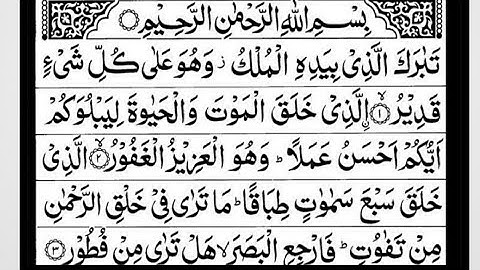 بِسْمِ اللهِ الرَّحْمٰنِ الرَّحِيْمِ ۝
تَبٰرَكَ الَّذِيْ بِيَدِهِ الْمُلْكُ ؗ وَهُوَ عَلٰى كُلِّ شَيْءٍ
قَدِيْرُ ۨ ۝۱ۙ الَّذِيْ خَلَقَ الْمَوْتَ وَالْحَيٰوةَ لِيَبْلُوَكُمْ
اَيُّكُمْ اَحْسَنُ عَمَلًا ؕ وَهُوَ الْعَزِيْزُ الْغَفُوْرُ ۝۲ۙ الَّذِيْ
خَلَقَ سَبْعَ سَمٰوٰتٍ طِبَاقًا ؕ مَا تَرٰى فِيْ خَلْقِ الرَّحْمٰنِ
مِنْ تَفٰوُتٍ ؕ فَارْجِعِ الْبَصَرَ ۙ هَلْ تَرٰى مِنْ فُطُوْرٍ ۝۳